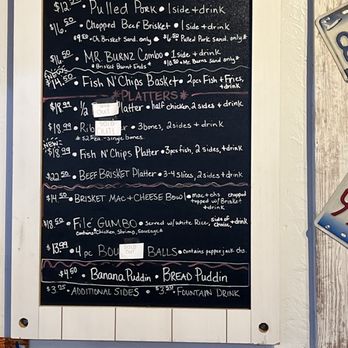 $12.50 • Pulled Pork • 1 side + drink
$16.50 • Chopped Beef Brisket • 1 side + drink
• $9.50 • Ch Brisket Sand. only • $6.50 Pulled Pork Sand. only
$16.50 • MR. BURNZ COMBO • 1 side + drink
• Brisket Burnt Ends • $10.50 • Mr. Burnz Sand. only
$14.50 • FISH N' CHIPS BASKET • 2 pcs Fish + Fries, + drink
*PLATTERS*
$18.99 • ½ Platter • half chicken, 2 sides + drink
$18.99 • Rib • 3 bones, 2 sides + drink
• single bones
NEW
$18.99 • FISH N' CHIPS Platter • 3 pcs fish, 2 sides, + drink
$22.50 • BEEF BRISKET Platter • 3-4 slices, 2 sides + drink
$14.50 • BRISKET MAC + CHEESE Bowl • mac + chs topped w/ Brisket + drink chopped
$18.50 • Filé GUMBO • Served w/ White Rice, side of choice, + drink
Contains Chicken, Shrimp, Sausage
$13.99 • 4 pc BOU BALLS • Contains pepper jack chs.
$4.50 • Banana Puddin • BREAD Puddin
$3.25 • ADDITIONAL SIDES • $3.50 • FOUNTAIN DRINK